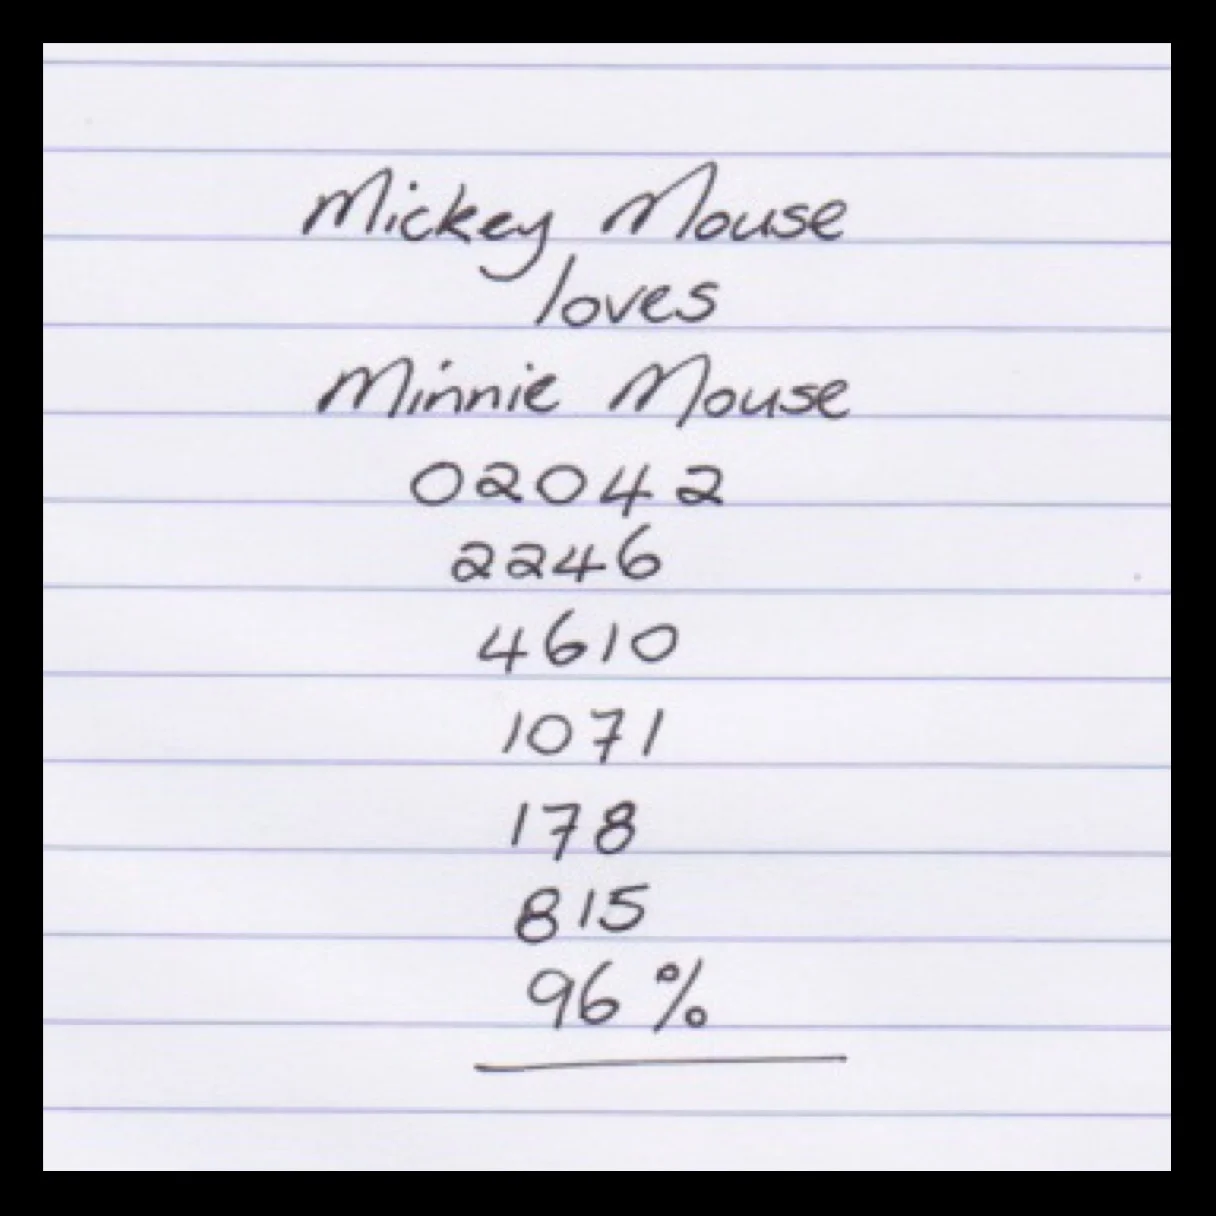 Mickey Mouse
loves
Minnie Mouse
02042
2246
4610
1071
178
815
96%